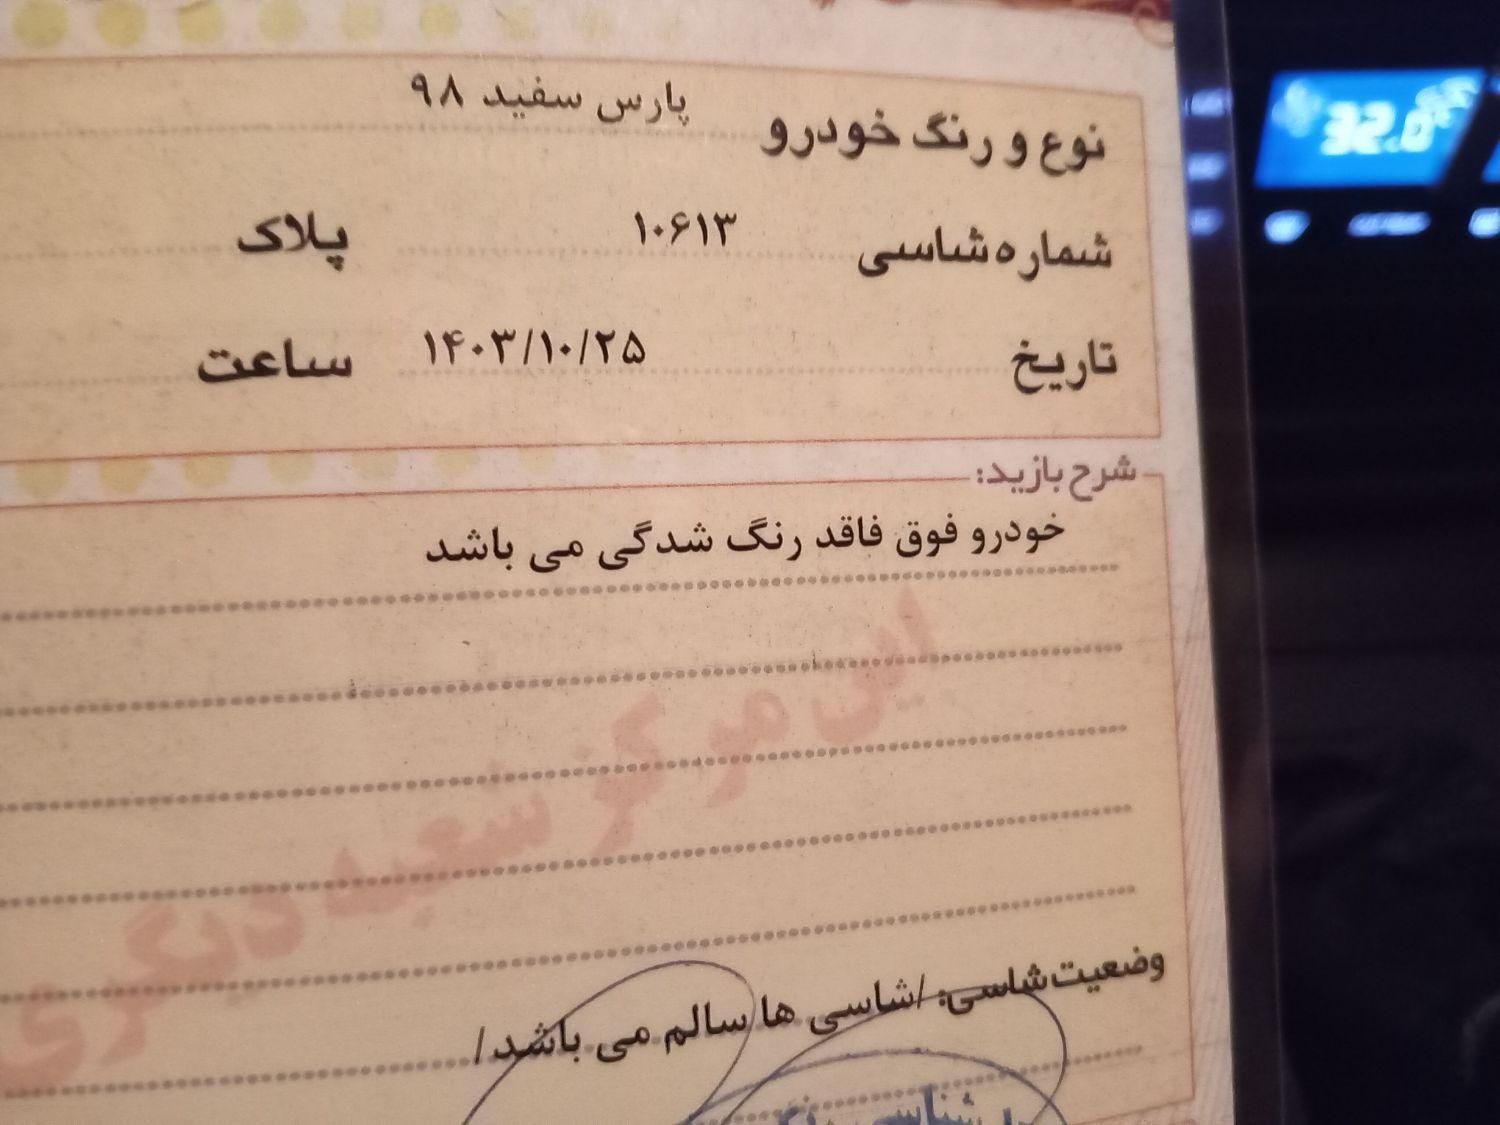 نوع و رنگ خودرو پارس سفید ۹۸
شماره شاسی ۱۰۶۱۳ پلاک
تاریخ ۱۴۰۳/۱۰/۲۵ ساعت
شرح بازید:
خودرو فوق فاقد رنگ شدگی می باشد
این مرکز شعبه دیگری
وضعیت شاسی: /شاسی ها سالم می باشد/
32.0